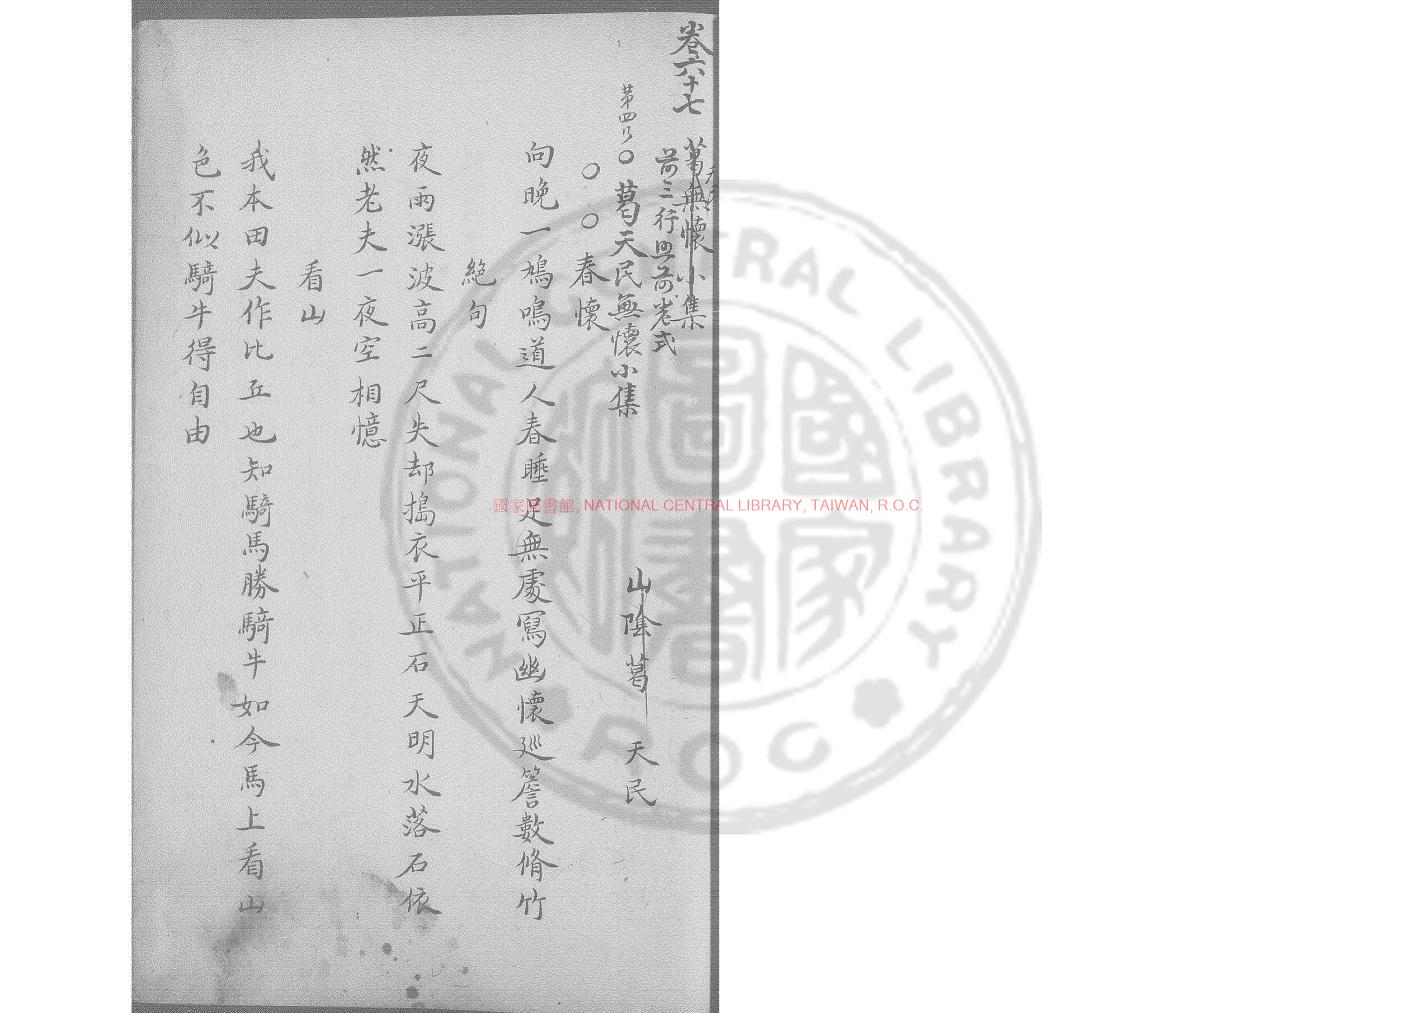 卷六十七
葛無懷小集
前三行與前卷式
第四行〇葛天民無懷小集
山陰葛天民
〇〇春懷
向晚一鳩鳴道人春睡足無處寫幽懷巡簷數脩竹
絕句
夜雨漲波高二尺失却搗衣平正石天明水落石依
然老夫一夜空相憶
看山
我本田夫作比丘也知騎馬勝騎牛如今馬上看山
色不似騎牛得自由
國家圖書館, NATIONAL CENTRAL LIBRARY, TAIWAN, R.O.C.
NATIONAL CENTRAL LIBRARY
ROC